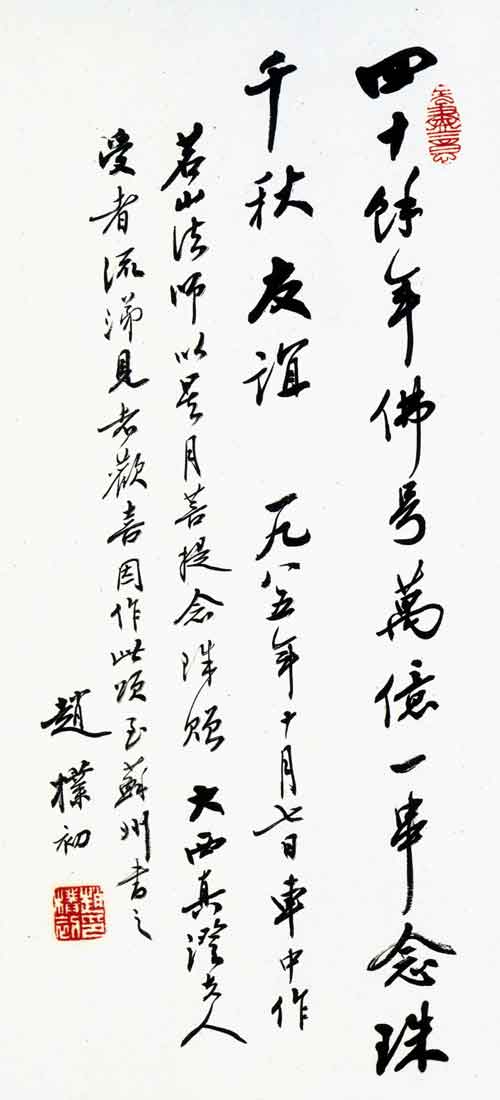 四十餘年佛号萬億一串念珠
千秋友誼 一九八五年十月七日車中作
茗山法師以星月菩提念珠贈 大西真澄夫人
受者流涕見者歡喜因作此頌至蘇州書之
趙樸初
无盡意